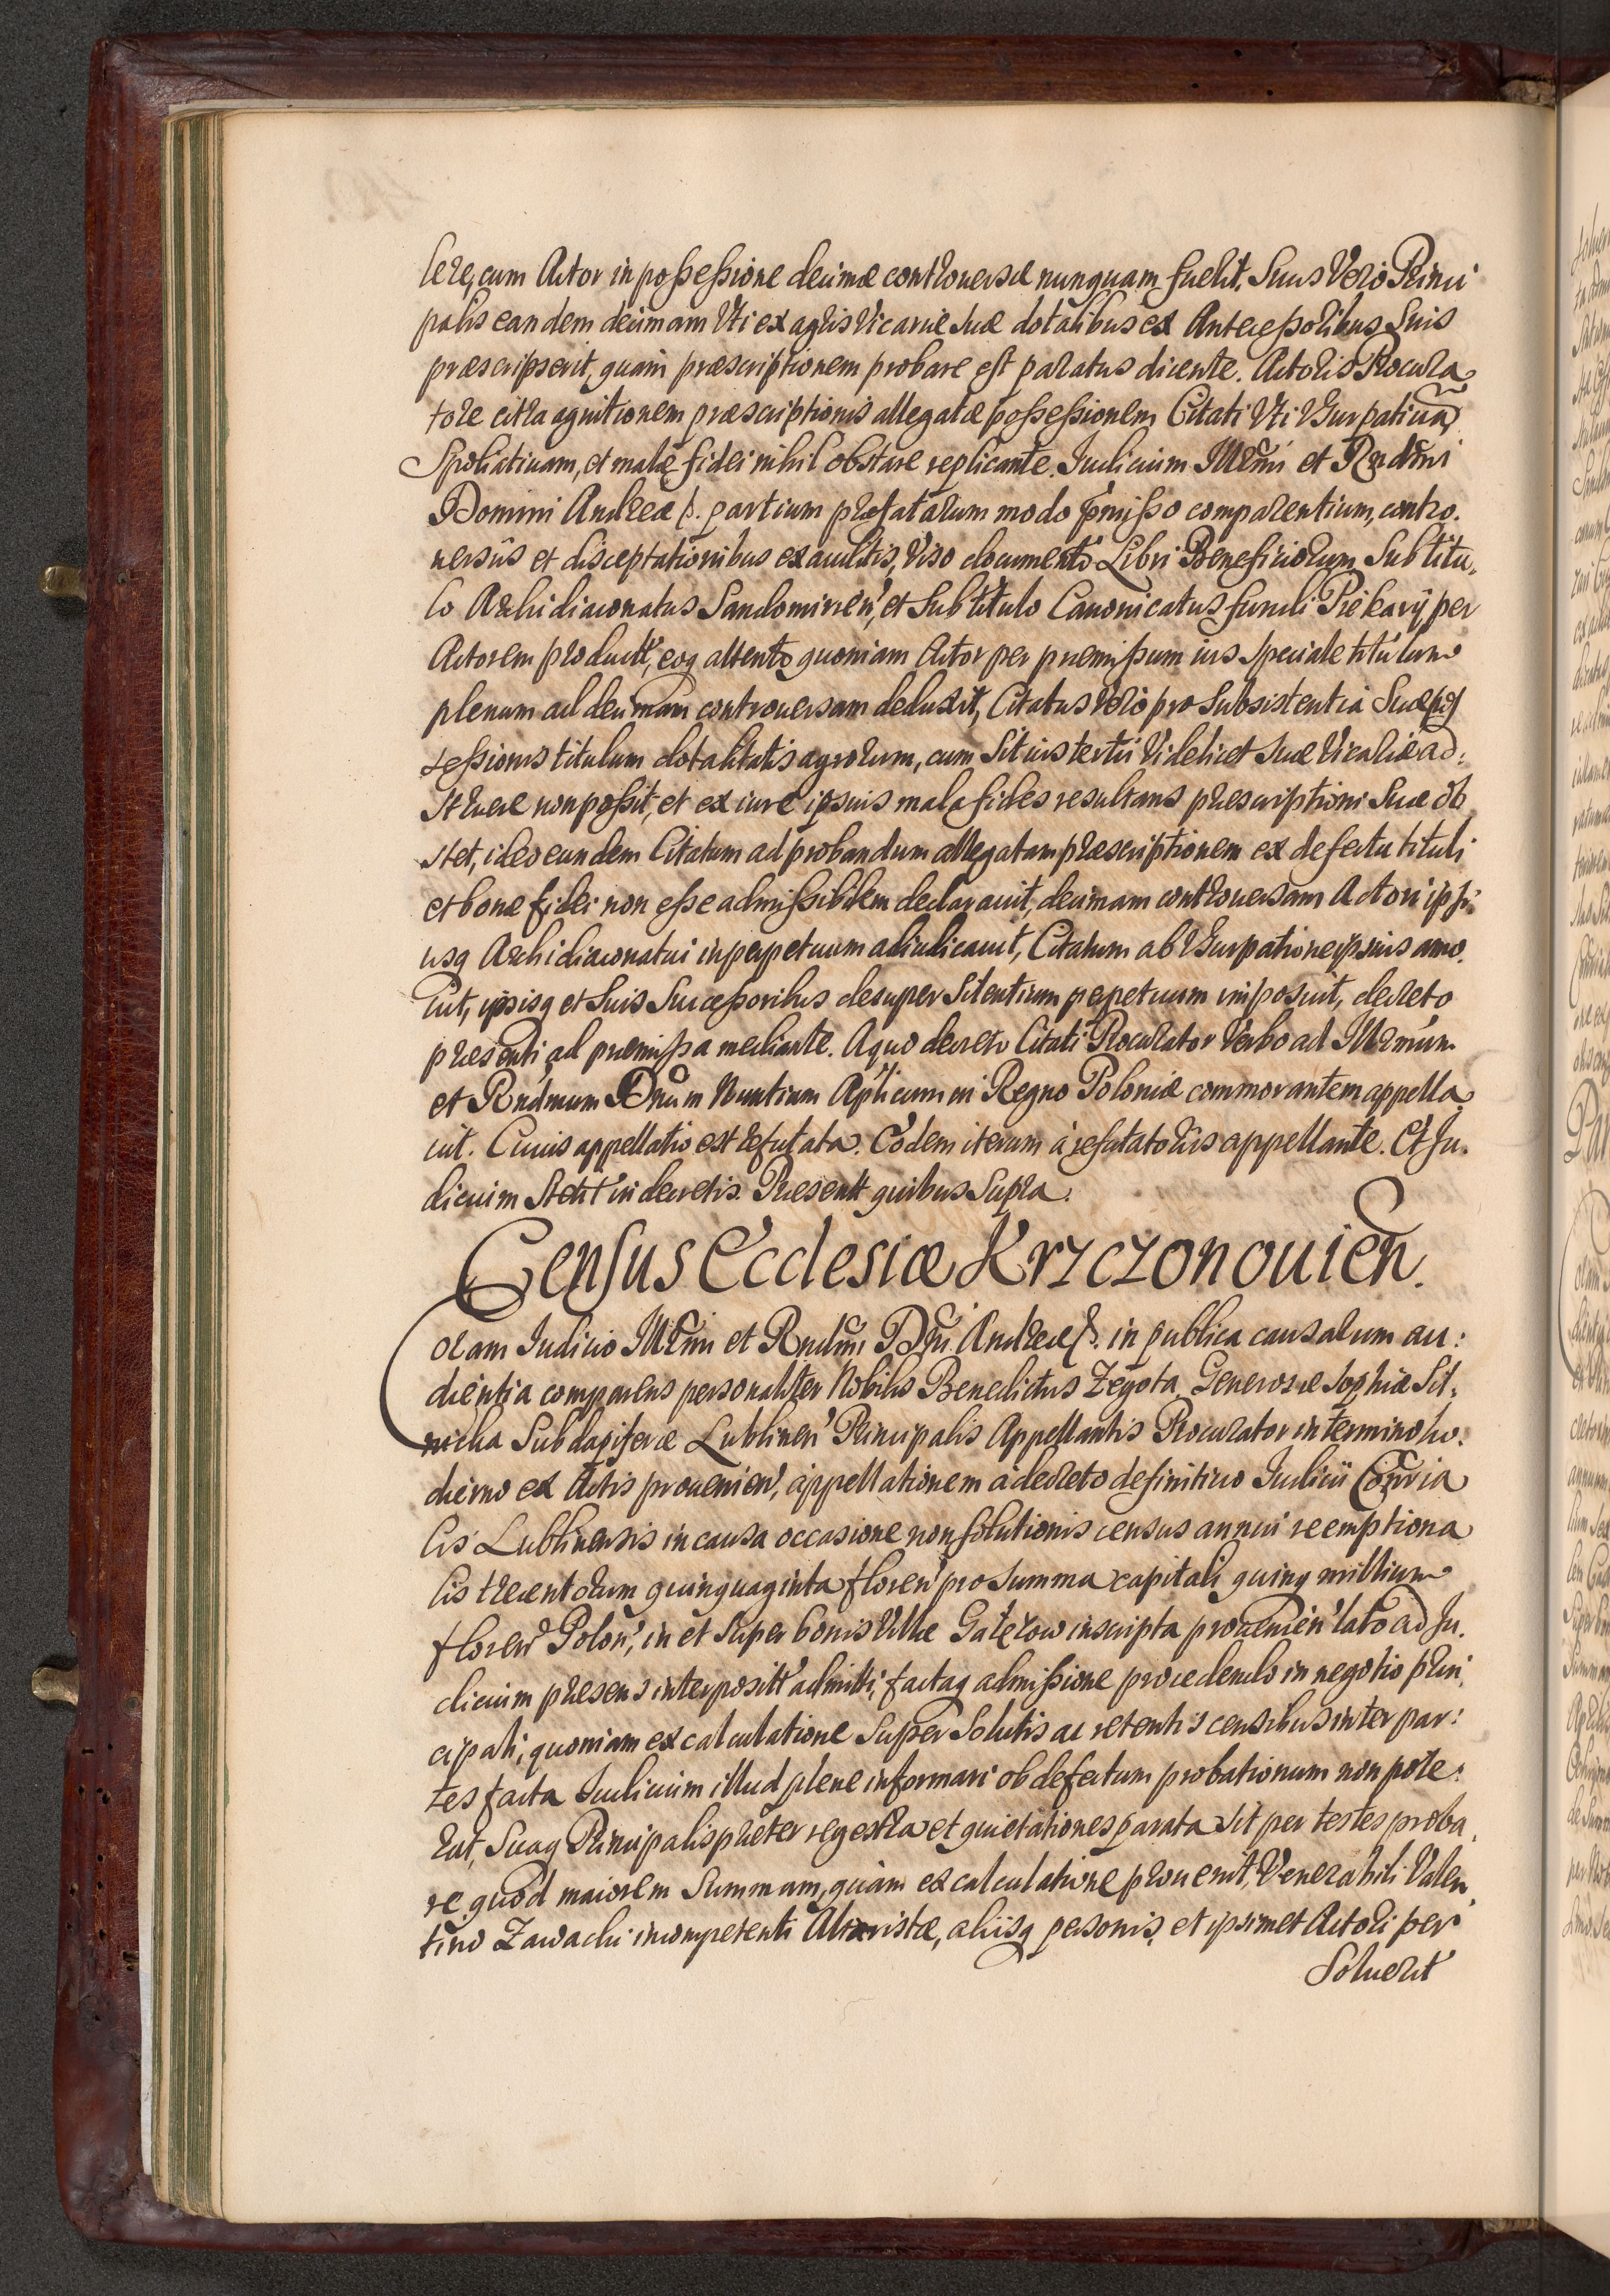 lere, cum Actor in possessione decimæ controuersæ nunquam fuerit. Suus Verò Princi
palis eandem decimam Uti ex agris Vicariæ suæ dotalibus ex Antecessoribus Suis
præscripserit, quam præscriptionem probare est paratus dicente. Actoris Procura
tore citra agnitionem præscriptionis allegatæ possessionem Citati Uti Usurpatiuã
Spoliatiuam, et malæ fidei nihil obstare replicante. Iudicium Illr̃mi et Rndm̃i
Domini Andreæ p. partium præfatarum modo præmisso comparentium, contro.
uersiis et disceptationibus exauditis, Viso documento Libri Beneficiorum Sub titu,
lo Archidiaconatus Sandomirien', et Sub titulo Canonicatus fundi Piekarÿ per
Actorem product', eoq attento quoniam Actor per præmissum ius Speciale titulum
plenum ad decimam controuersam deduxit, Citatus Verò pro Subsistentia Suæ pos
sessionis titulum dotalitatis agrorum, cum Sit ius tertii Videlicet suæ Vicariæ ad:
struere non possit, et ex iure ipsius mala fides resultans præscriptioni Suæ ob
stet, ideo eundem Citatum ad probandum allegatam præscriptionem ex defectu tituli
et bonæ fidei non esse admissibilem declarauit, decimam controuersam Actori ipsi:
usq Archidiaconatui in perpetuum adiudicauit, Citatum ab Usurpatione ipsius amo.
uit, ipsisq et Suis Successoribus desuper Silentium perpetuum imposuit, decreto
præsenti ad præmissa mediante. A quo decreto Citati Procurator Verbo ad Illr̃mum
et Rnd́mum Dnũm Nuntium Aplicum in Regno Poloniæ commorantem appella
uit. Cuius appellatio est refutata. Eodem iterum à refutatoriis appellante. Et Ju.
dicium Stetit in decretis. Præsentt quibus Supra.
Census Ecclesiæ Krzczonouien̄.
Coram Iudicio Illr̃mi et Rndm̃i Dn̄i Andreæ p. in publica causarum au:
dientia comparens personaliter Nobilis Benedictus Zegota Generosæ Sophiæ Sit,
nicka Subdapiferæ Lublinen' Principalis Appellantis Procurator in termino ho:
dierno ex Actis prouenien', appellationem à decreto definitiuo Iudicii Consr̃ia
lis Lublinensis in causa occasione non Solutionis census annui reemptiona
lis trecentorum quinquaginta floren' pro Summa capitali quinq millium
floren' Polon', in et Super bonis Villæ Gałęzow inscripta prouenien' lato ad Ju.
dicium præsens interposit' admitti, factaq admissione procedendo in negotio prin,
cipali, quoniam ex calculatione Super Solutis ac retentis censibus inter par:
tes facta Iudicium illud plene informari ob defectum probationum non pote:
rat, Suaq Principalis præter regestra et quietationes parata Sit per testes proba,
re quod maiorem Summam, quàm ex calculatione prouenit, Venerabili Valen,
tino Zawacki incompetenti Altaristæ, aliisq personis, et ipsimet Actori per
Soluerit